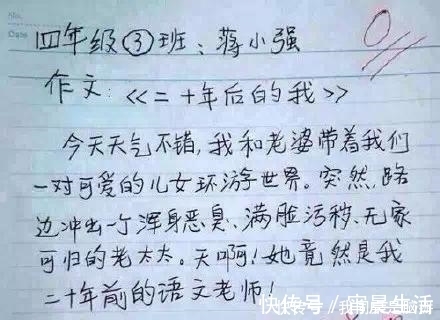 No.
Date
四年级③班：蒋小强
0
作文：《二十年后的我》
今天天气不错，我和老婆带着我们
一对可爱的儿女环游世界。突然，路
边冲出一个浑身恶臭、满脸污秽、无家
可归的老太太。天啊！她竟然是我
二十年前的语文老师！
快传号／宵晨生活